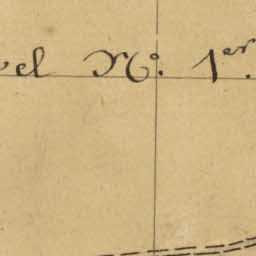 vel Nº. 1er.